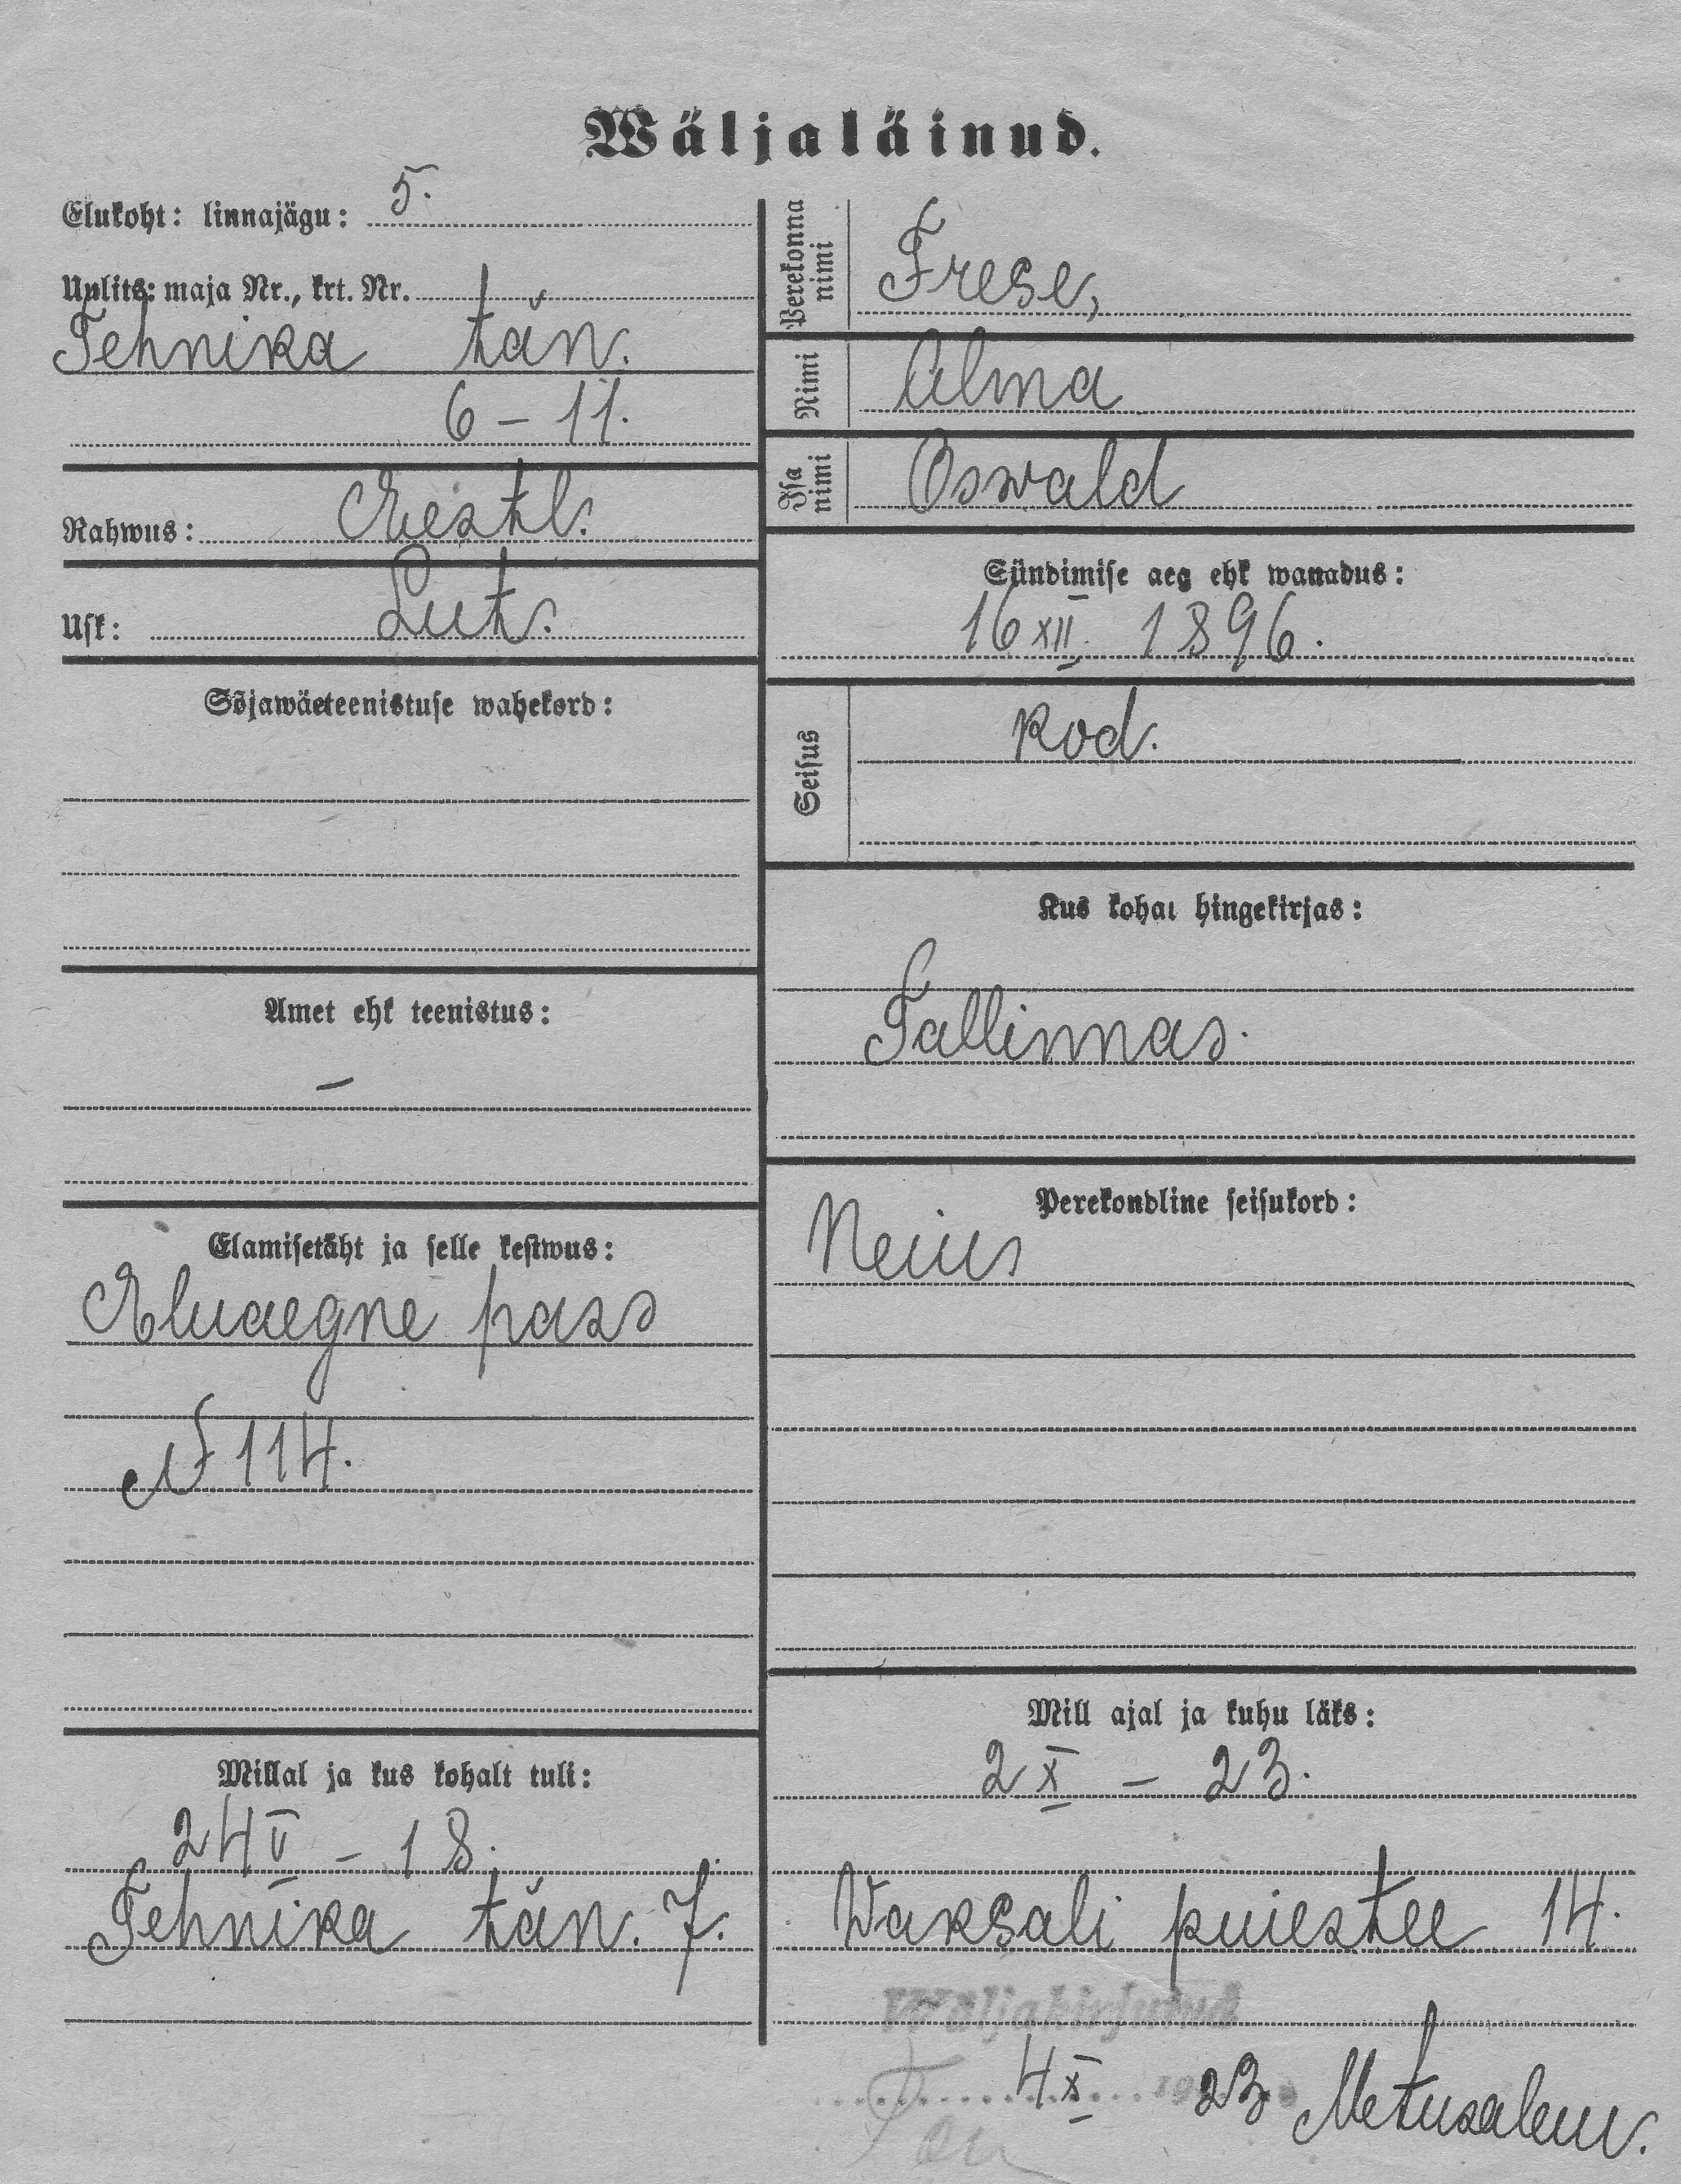 Wäljaläinud.
Elukoht: linnajägu: 5.
Uulits: maja Nr., krt. Nr.
Tehnika tän.
6 – 11.
Rahwus: Eestl.
Usk: Lut.
Sõjawäeteenistuse wahekord:
Amet ehk teenistus:
–
Elamisetäht ja selle kestwus:
Eluaegne pass
№ 114.
Millal ja kus kohalt tuli:
24 V – 18.
Tehnika tän. 7.
Perekonna nimi Frese,
Nimi Alma
Isa nimi Oswald
Sündimise aeg ehk wanadus:
16 XII 1896.
Seisus kod.
Kus kohal hingekirjas:
Tallinnas.
Perekondline seisukord:
Neius
Mill ajal ja kuhu läks:
2 X – 23.
Waksali puiestee 14.
Wäljakirjutud
4 X 23 Metusalem.